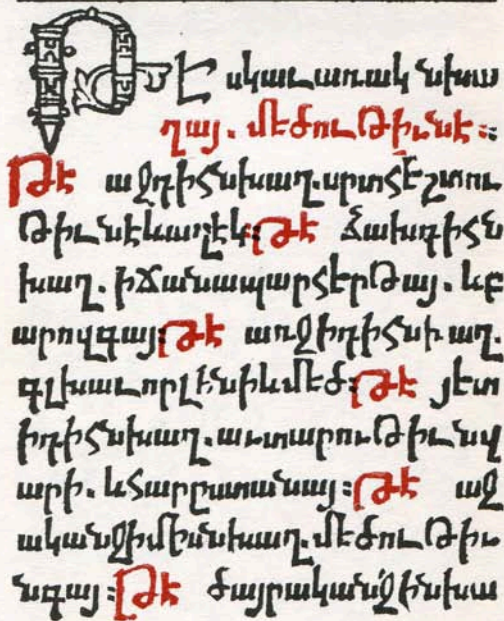 ԹԷ սկաւառակ նխա
ղայ. մեծութիւնէ։
Թէ աջդիհնխաղ. սրտհեշտու
թիւնէևայլեկ։ Թէ ձախդիհն
խաղ. իճանապարհերթայ. ևբ
արովգայ։ Թէ առջիդիհնխաղ.
գլխաւորլինիևմեծ։ Թէ յետ
իդիհնխաղ. աւտարութիւնվ
արի. ևհարըստանայ։ Թէ աջ
ականջիմիսնխաղ. մեծութիւ
նգայ։ Թէ ծայրականջինխա